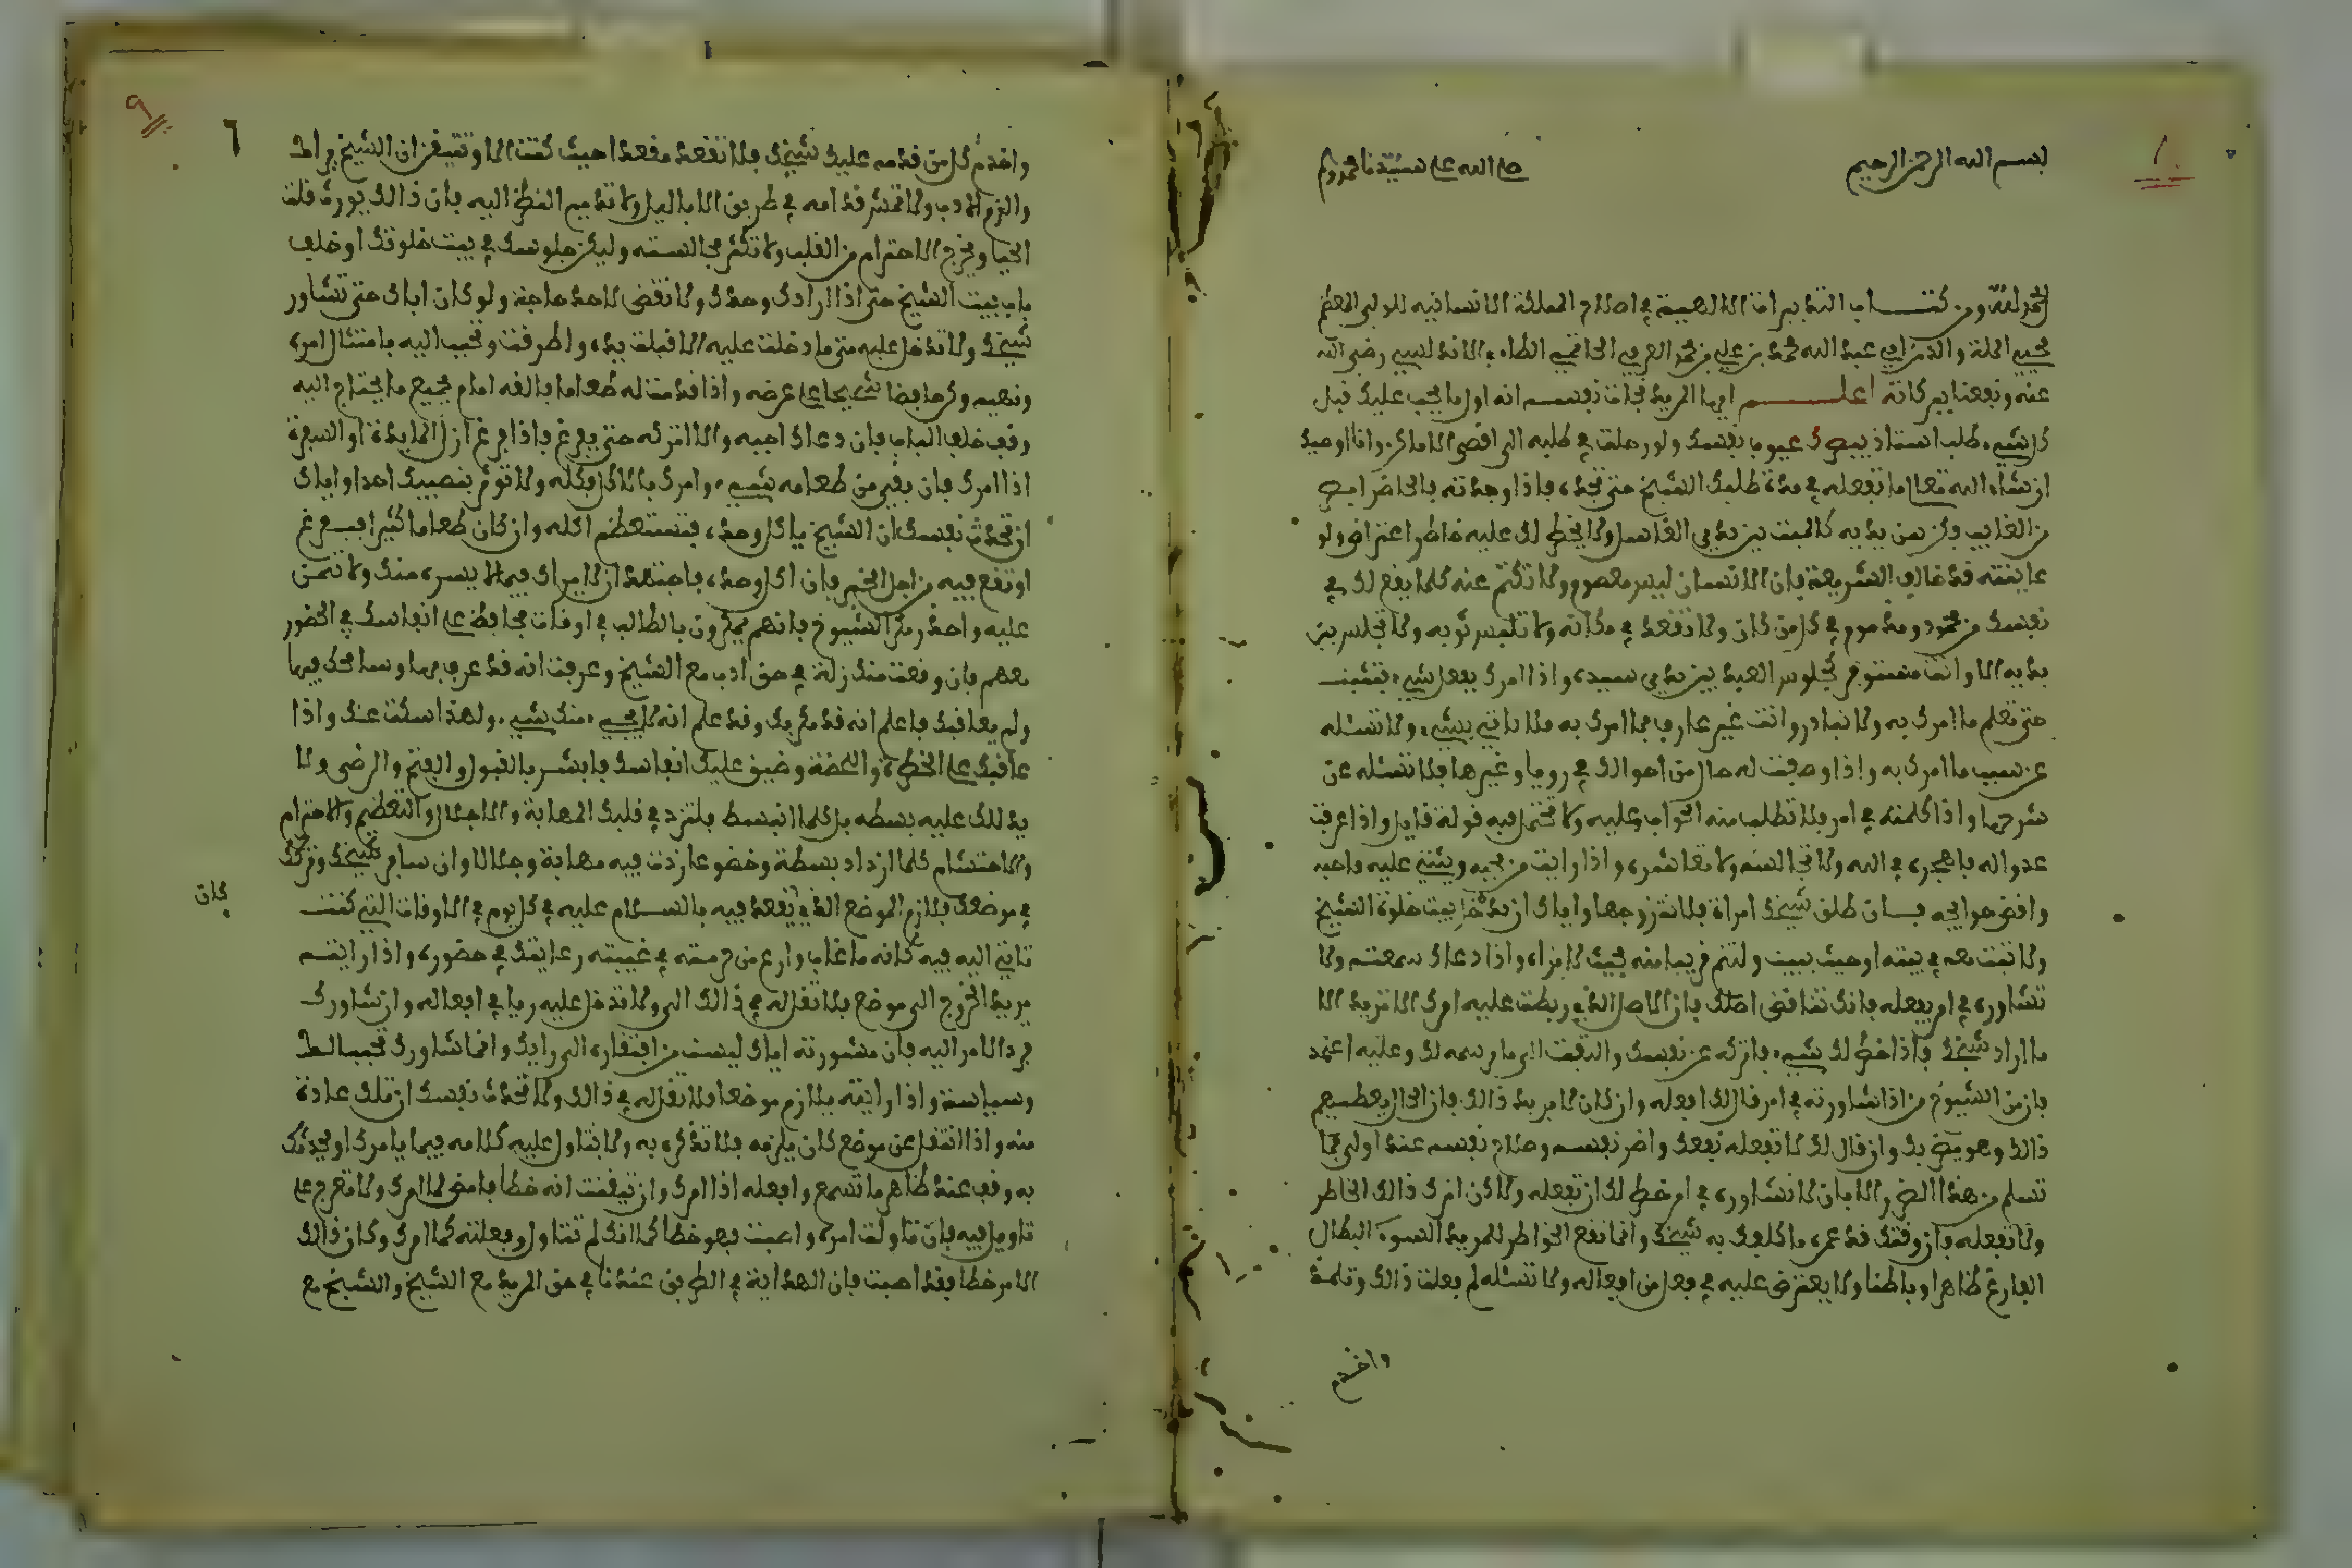 بسم الله الرحمن الرحيم صلى الله على سيدنا محمد
الحمد لله ومن كتاب التدبيرات الالاهية في اصلاح المملكة الانسانية للولي المعظم
محيي الملة والدين ابي عبد الله محمد بن علي بن محمد العربي الحاتمي الطاءي الاندلسي رضي الله
عنه ونفعنا ببركاته اعلم ايها المريد نجات نفسه انه اول ما يجب عليك قبل
كل شيء طلب استاذ يبصرك عيوب نفسك ولو رحلت في طلبه الى اقصى الاماكن وانا اوصيك
ان شاء الله تعالى ما تفعله في مدة طلبك الشيخ حتى تجده فاذا وجدته فالحاضر ابصر
من الغايب فكن بين يديه كالميت بين يدي الغاسل ولا يخطر لك عليه خاطر اعتراض ولو
عاينته قد خالف الشريعة فان الانسان ليس بمعصوم ولا تكتم عنه كلما يقع لك في
نفسك من محمود ومذموم في كل من كان ولا تقعد في مكانه ولا تلبس ثوبه ولا تجلس بين
يديه الا وانت مستوفز كجلوس العبد بين يدي سيده واذا امرك بفعل شيء فتثبت
حتى تعلم ما امرك به ولا تبادر وانت غير عارف بما امرك به فلا تاتي بشيء ولا تسئله
عن سبب ما امرك به واذا وصفت له حال من احوالك في رويا وغيرها فلا تسئله عن
شرحها واذا كلمته في امر فلا تطلب منه الجواب عليه ولا تحتمل فيه قولة قايل واذا عرفت
عدوا له فاهجره في الله ولا تجالسه ولا تعاشره واذا رايت من يحبه ويثني عليه فاحبه
واقض حوايجه فان طلق شيخك امراة فلا تتزوجها واياك ان تدخل بيت خلوة الشيخ
ولا تبت معه في بيته او حيث يبيت ولتنم قريبا منه بحيث لا يراه واذا دعاك سمعته ولا
تشاوره في امر يفعله فانك تناقض اصلك فان الاصل الذي ربطت عليه امرك الا تريد الا
ما اراد شيخك فاذا خطر لك شيء فاتركه عن نفسك والتفت الى ما يرسمه لك وعليه اعتمد
فان من الشيوخ من اذا شاورته في امر قال لك افعله وان كان لا يريد ذالك فان الحال يعطيهم
ذالك وهو يضر بك وان قال لك لا تفعله نفعك واضر نفسه وصلاح نفسه عنده اولى مما
تسلم من هذا الضرر الا بان لا تشاوره في امر خطر لك ان تفعله ولاكن اترك ذالك الخاطر
ولا تفعله فان وقتك قد عمره ما كلفك به شيخك وانما تقع الخواطر للمريد السوء البطال
الفارغ ظاهرا وباطنا ولا يعترض عليه في فعل من افعاله ولا تسئله لم فعلت ذالك وتلمذ
واخدم
واخدم كل من قدمه عليك شيخك فلا تقعد مقعدا حيث كنت الا وتتيقن ان الشيخ يراك
والزم الادب ولا تمش قدامه في طريق الا بالليل ولا تديم النظر اليه فان ذالك يورث قلة
الحيا ويخرج الاحترام من القلب ولا تكثر مجالسته وليكن جلوسك في بيت خلوتك او خلف
باب بيت الشيخ حتى اذا ارادك وجدك ولا تقض لاحد حاجة ولو كان اباك حتى تشاور
شيخك ولا تدخل عليه متى ما دخلت عليه الا قبلت يده واطرقت وتحبب اليه بامتثال امره
ونهيه وكن حافظا شحيحا على عرضه واذا قدمت له طعاما فالقه امامه بجميع ما يحتاج اليه
وقف خلف الباب فان دعاك اجبه والا اتركه حتى يفرغ فاذا فرغ ازل المايدة او السفرة
اذا امرك فان بقي من طعامه شيء وامرك بالاكل فكله ولا توثر بنصيبك احدا واياك
ان تحدث نفسك ان الشيخ ياكل وحده فتستعظم اكله وان كان طعاما كثيرا فيفرغ
عليه واحذر مكر الشيوخ فانهم يمكرون بالطالب في اوقات فحافظ على انفاسك في الحضور
معهم فان وقعت منك زلة في حق ادب مع الشيخ وعرفت انه قد عرف بها وسامحك فيها
ولم يعاقبك فاعلم انه قد مكر بك وقد علم انه لا يجيء منك شيء ولهذا سكت عنك واذا
عاقبك على الخطرة واللحظة وضيق عليك انفاسك فابشر بالقبول والفتح والرضى ولا
يدلك عليه بسطه بل كلما انبسط فلتزد في قلبك المهابة والاجلال والتعظيم والاحترام
والاحتشام كلما ازداد بسطة وخضوعا زدت فيه مهابة وجلالا وان سافر شيخك وتركك
كان
في موضعك فلازم الموضع الذي يقعد فيه بالسلام عليه في كل يوم في الاوقات التي كنت
تاتي اليه فيه كانه ما غاب وارع من حرمته في غيبته رعايتك في حضوره واذا رايته
يريد الخروج الى موضع فلا تقل له في ذالك الى ولا تدخل عليه رايا في افعاله وان شاورك
فرد الامر اليه فان مشورته اياك ليست من افتقاره الى رايك وانما شاورك تحببا لك
وسياسة واذا رايته يلازم موضعا فلا تقل له في ذالك ولا تحدث نفسك ان تلك عادة
منه واذا انتقل عن موضع كان يلزمه فلا تذكره به ولا تتاول عليه كلامه فيما يامرك او يحدثك
به وقف عند ظاهر ما تسمع وافعله اذا امرك وان تيقنت انه خطا فامض لما امرك ولا تعرج على
تاويل فيه فان تاولت امره واصبت فهو خطا كما انك لم تتاول وفعلته كما امرك وكان ذالك
الامر خطا فقد اصبت فان الهداية في الطريق عندنا في حق المريد مع الشيخ والشيخ مع